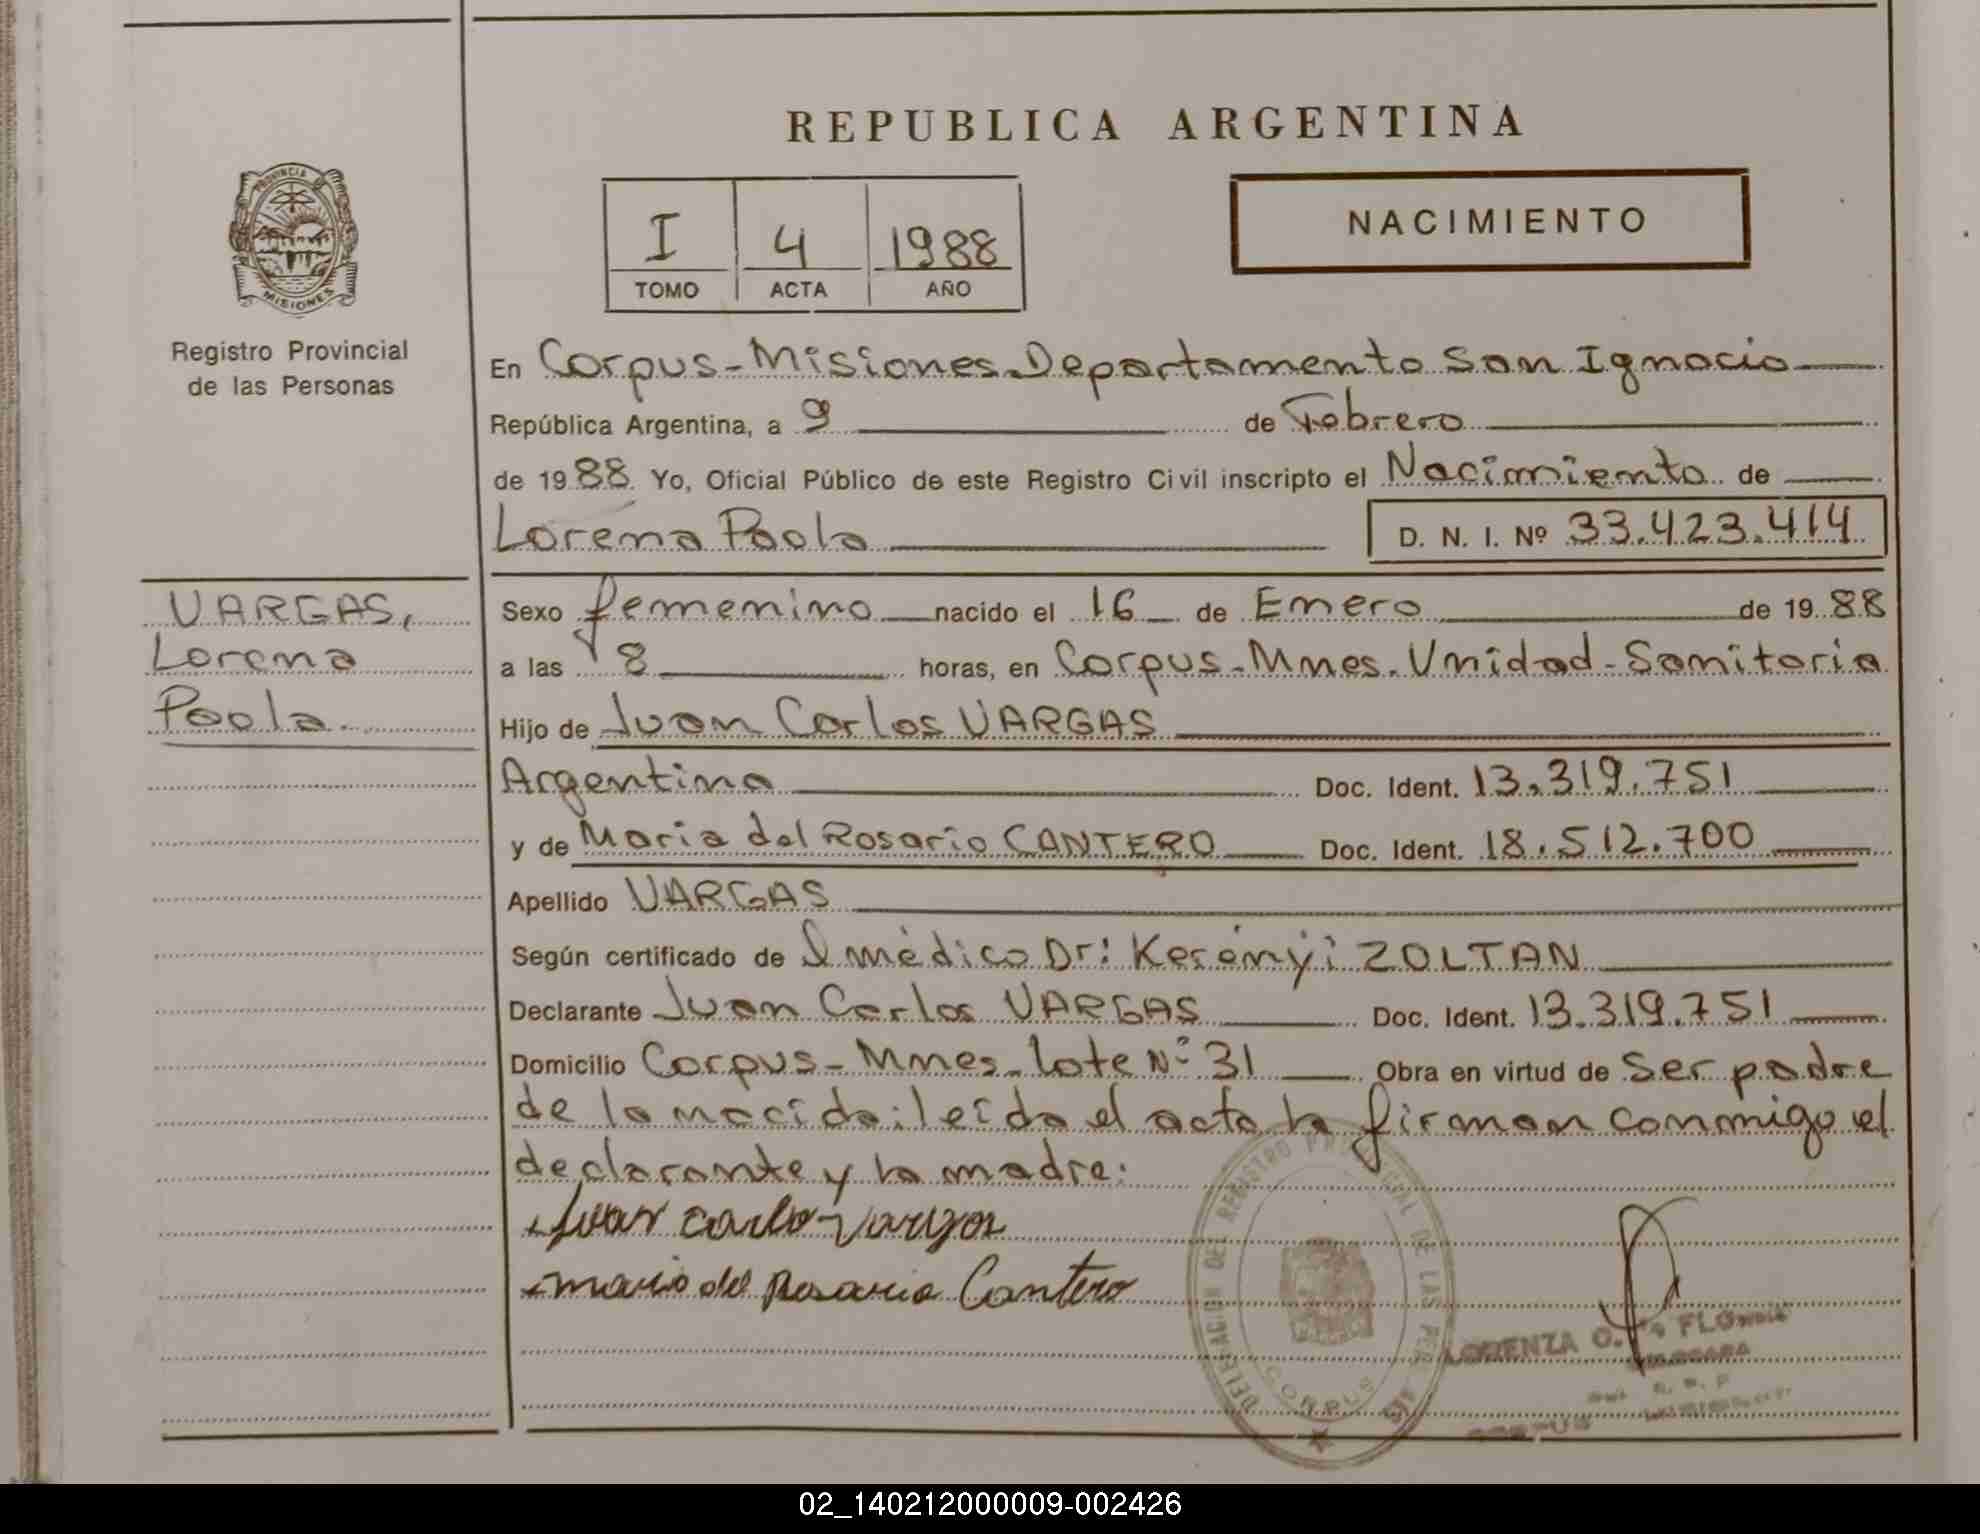 REPUBLICA ARGENTINA
PROVINCIA DE
MISIONES
Registro Provincial
de las Personas
I 4 1988
TOMO ACTA AÑO
NACIMIENTO
En Corpus-Misiones-Departamento San Ignacio
República Argentina, a 9 de Febrero
de 1988 Yo, Oficial Público de este Registro Civil inscripto el Nacimiento de
Lorena Paola D. N. I. Nº 33.423.414
VARGAS,
Lorena
Paola
Sexo femenino nacido el 16 de Enero de 1988
a las 8 horas, en Corpus-Mnes. Unidad-Sanitaria
Hijo de Juan Carlos VARGAS
Argentina Doc. Ident. 13.319.751
y de Maria del Rosario CANTERO Doc. Ident. 18.512.700
Apellido VARGAS
Según certificado de l médico Dr: Kerényi ZOLTAN
Declarante Juan Carlos VARGAS Doc. Ident. 13.319.751
Domicilio Corpus-Mnes-lote Nº 31 Obra en virtud de Ser padre
de la nacida; leída el acta la firman conmigo el
declarante y la madre:
Juan Carlo Vargas
maria del Rosario Cantero
DELEGACION DEL REGISTRO PROVINCIAL DE LAS PERSONAS
CORPUS
LORENZA O.
CORPUS
02_140212000009-002426